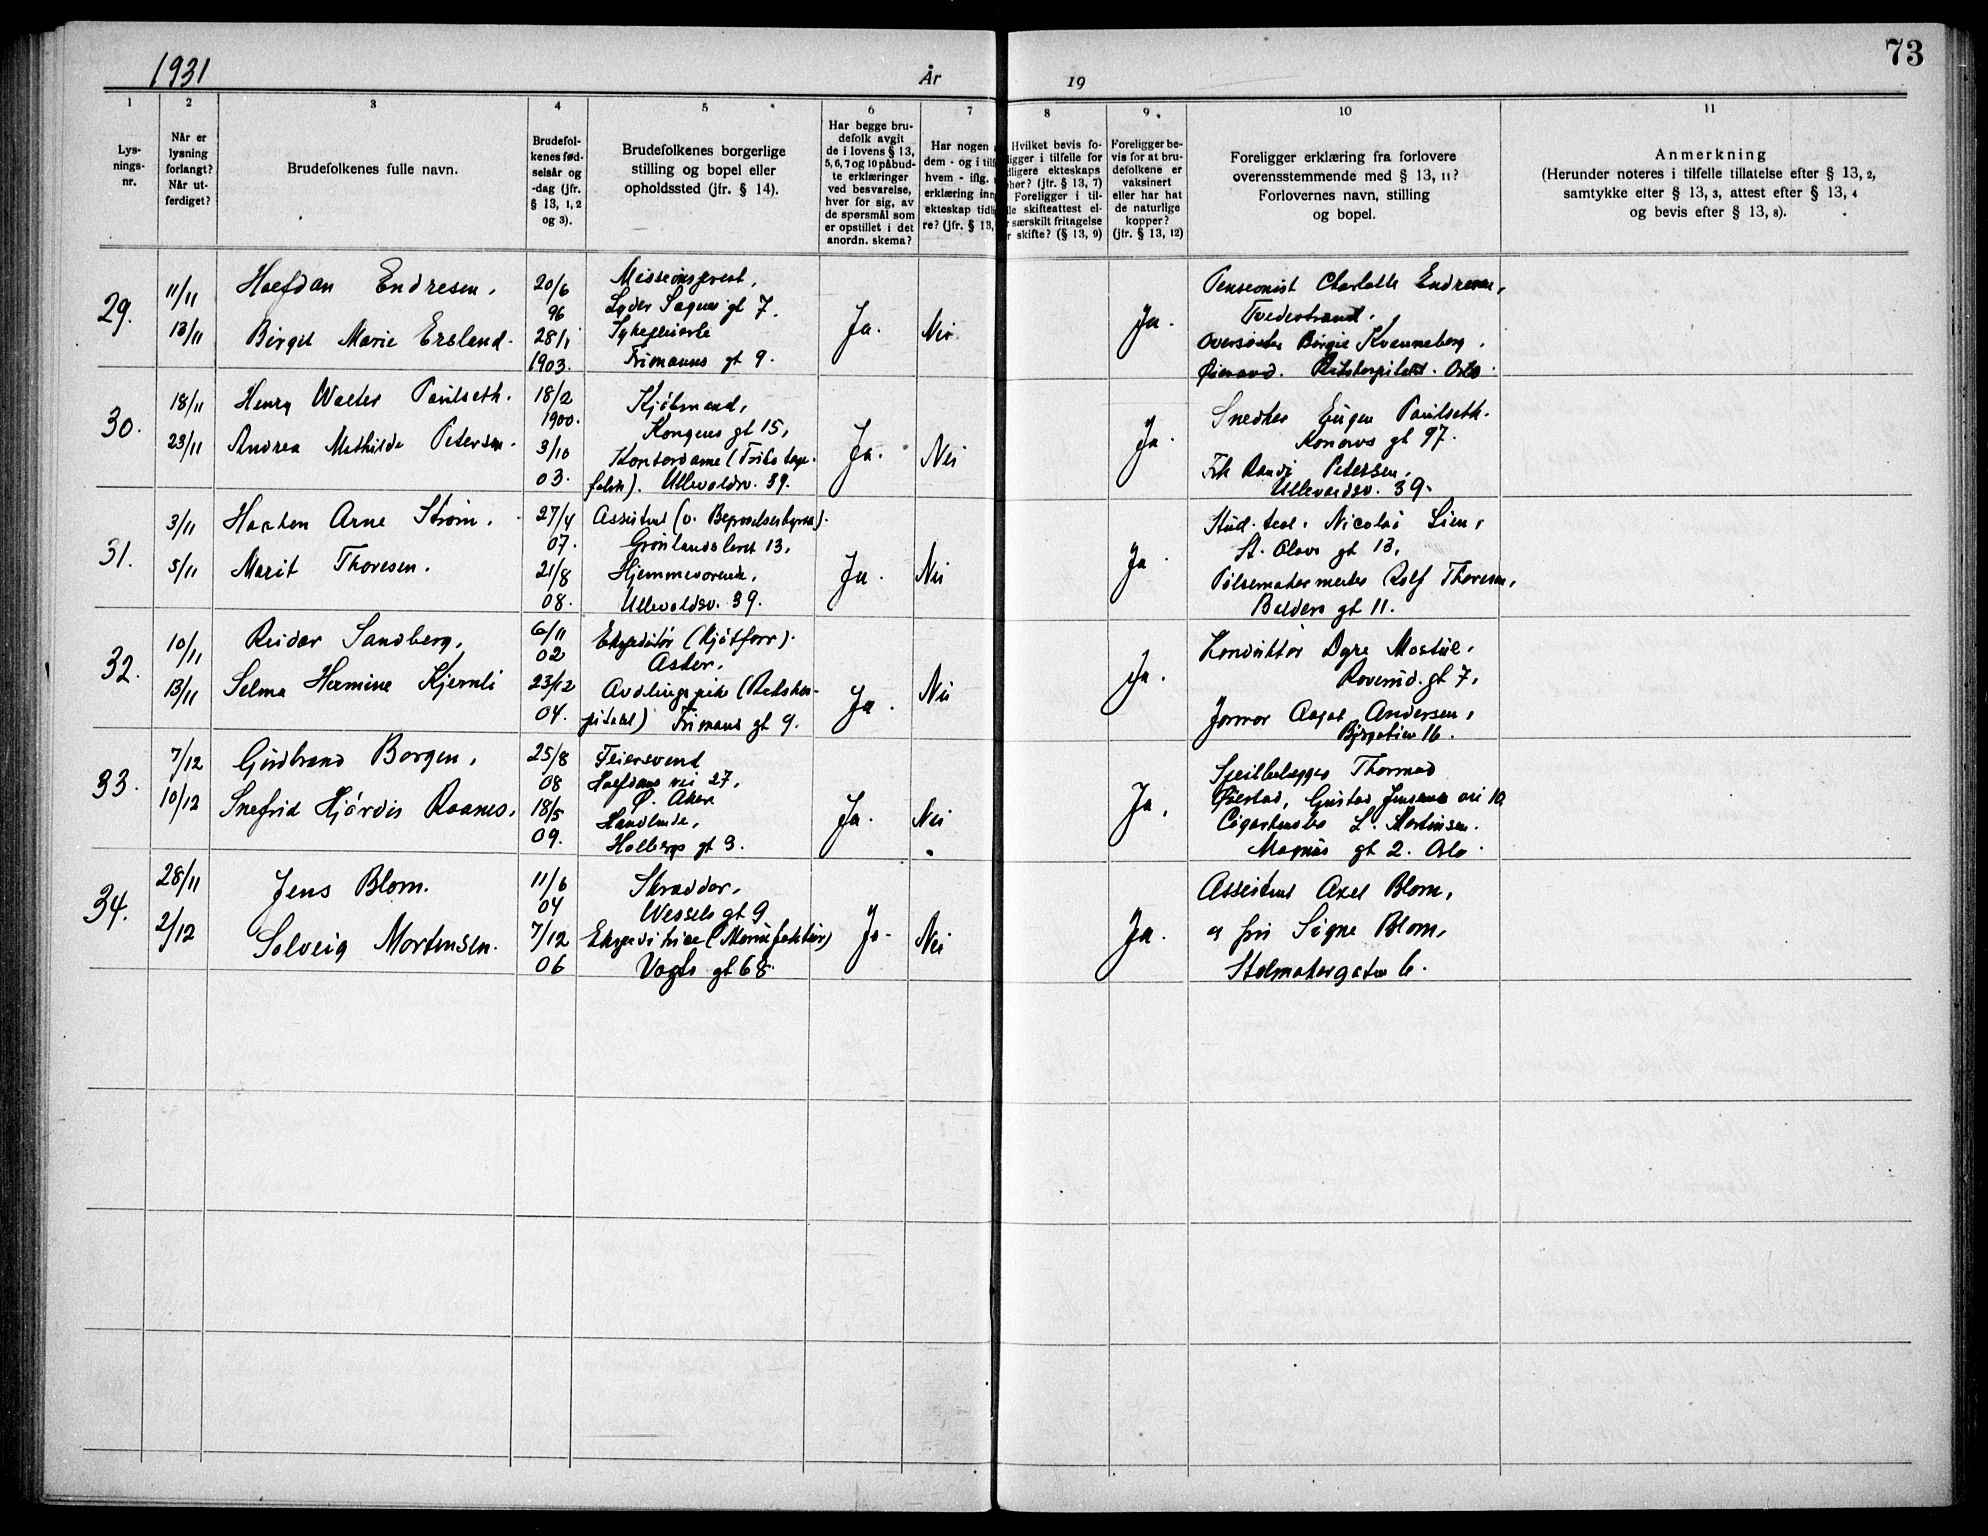 1931
År
19
73
1
2
3
4
5
6
7
8
9
10
11
Lys-
nings-
nr.
Når er
lysning
forlangt?
Når ut-
ferdiget?
Brudefolkenes fulle navn.
Brudefol-
kenes fød-
selsår og
-dag (jfr.
§ 13, 1, 2
og 3).
Brudefolkenes borgerlige
stilling og bopel eller
opholdssted (jfr. § 14).
Har begge bru-
defolk avgit
de i lovens § 13,
5, 6, 7 og 10 påbud-
te erklæringer
ved besvarelse,
hver for sig, av
de spørsmål som
er opstillet i det
anordn. skema?
Har nogen
dem - og i tilf
hvem - iflg.
erklæring inn
ekteskap tidl
re? (jfr. § 13,
Hvilket bevis fo-
ligger i tilfelle for
dligere ekteskaps
hør? (jfr. § 13, 7)
Foreligger i til-
le skifteattest el-
særskilt fritagelse
r skifte? (§ 13, 9)
Foreligger be-
vis for at bru-
defolkene er
vaksinert
eller har hat
de naturlige
kopper?
(jfr. § 13, 12)
Foreligger erklæring fra forlovere
overensstemmende med § 13, 11?
Forlovernes navn, stilling
og bopel.
Anmerkning
(Herunder noteres i tilfelle tillatelse efter § 13, 2,
samtykke efter § 13, 3, attest efter § 13, 4
og bevis efter § 13, 8).
29.
11/11
13/11
Halfdan Endresen,
Birgit Marie Ersland.
20/6
96
28/1
1903.
Missionsprest,
Lyder Sagens gt 7.
Sykepleierske
Frimanns gt 9.
Ja.
Nei
Ja.
Pensionist Charlotte Endresen,
Tvedestrand.
Oversøster Birgit Kvanneberg,
Rikshospitalet. Oslo.
30.
18/11
23/11
Henry Walter Paulseth.
Andrea Mathilde Petersen.
18/2
1900.
3/10
03.
Kjøbmand,
Kongens gt 15,
Kontordame
Ullevoldsv. 39.
Ja.
Nei
Ja
Snedker Eugen Paulseth.
Konows gt 97.
Frk Randi Petersen,
Ullevoldsv. 39.
31.
3/11
5/11
Haakon Arne Strøm.
Marit Thoresen.
27/4
07.
21/8
08.
Assistent
Grønlandsleret 13,
Hjemmeværende,
Ullevoldsv. 39.
Ja.
Nei
Ja
Stud. teol. Nicolai Lien,
St. Olavs gt 13,
Pølsemakermester Rolf Thoresen,
Balders gt 11.
32.
10/11
13/11
Reidar Sandberg,
Selma Hermine Kjernli
6/11
02
23/12
04.
Ekspeditør (Kjøtforr).
Asker.
Avdelingspike (Rikshos-
pitalet) Frimans gt 9.
Ja.
Nei
Ja.
Konduktør Dyre Mostul.
gt 7,
Andersen,
16.
33.
7/12
10/12
Gudbrand Borgen,
Snefrid Hjørdis Raanes.
25/8
08
18/5
09.
Feiersvend
Halfdans vei 27,
Ø. Aker
Holbergs gt 3.
Ja.
Nei
Ja.
Speilbelegger Thormod
Øiestad, Gustav Jensens vei 10
L. Mortinsen.
Magnus gt 2. Oslo.
34.
28/11
2/12
Jens Blom.
Solveig Mortensen.
11/6
04
7/12
06
Skrædder,
Wessels gt 9
Ekspeditrise (Manufaktur)
Vogts gt 68.
Ja.
Nei
Ja.
Assistent Axel Blom,
og fru Signe Blom,
Stolmakergaten 6.